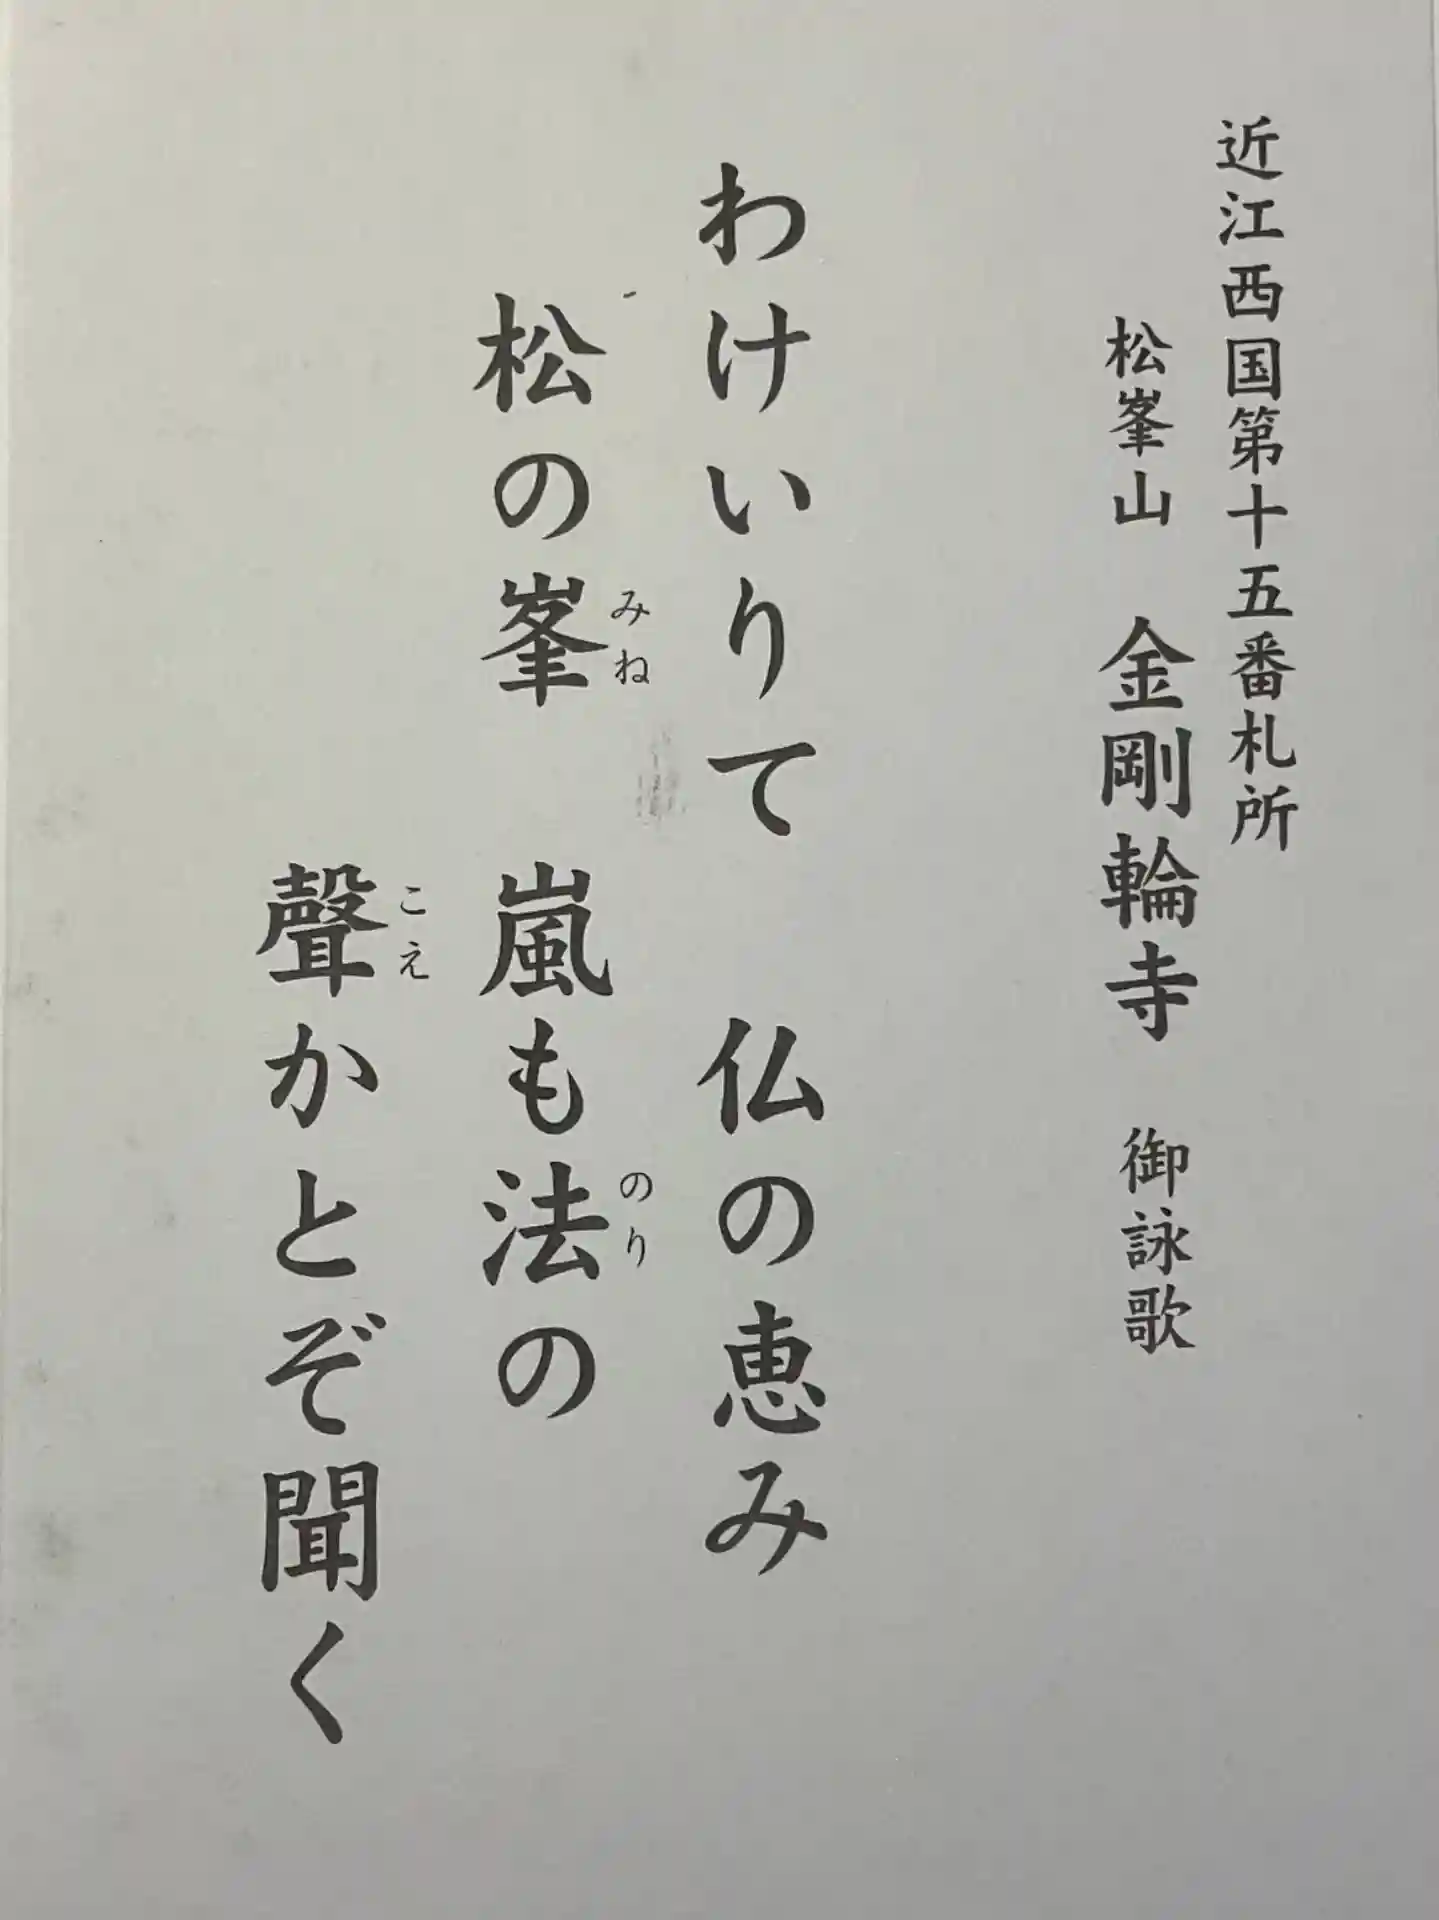 近江西国第十五番札所
松峯山 金剛輪寺 御詠歌
わけいりて 仏の恵み
松の峯 嵐も法の
みね
のり
聲かとぞ聞く
こえ